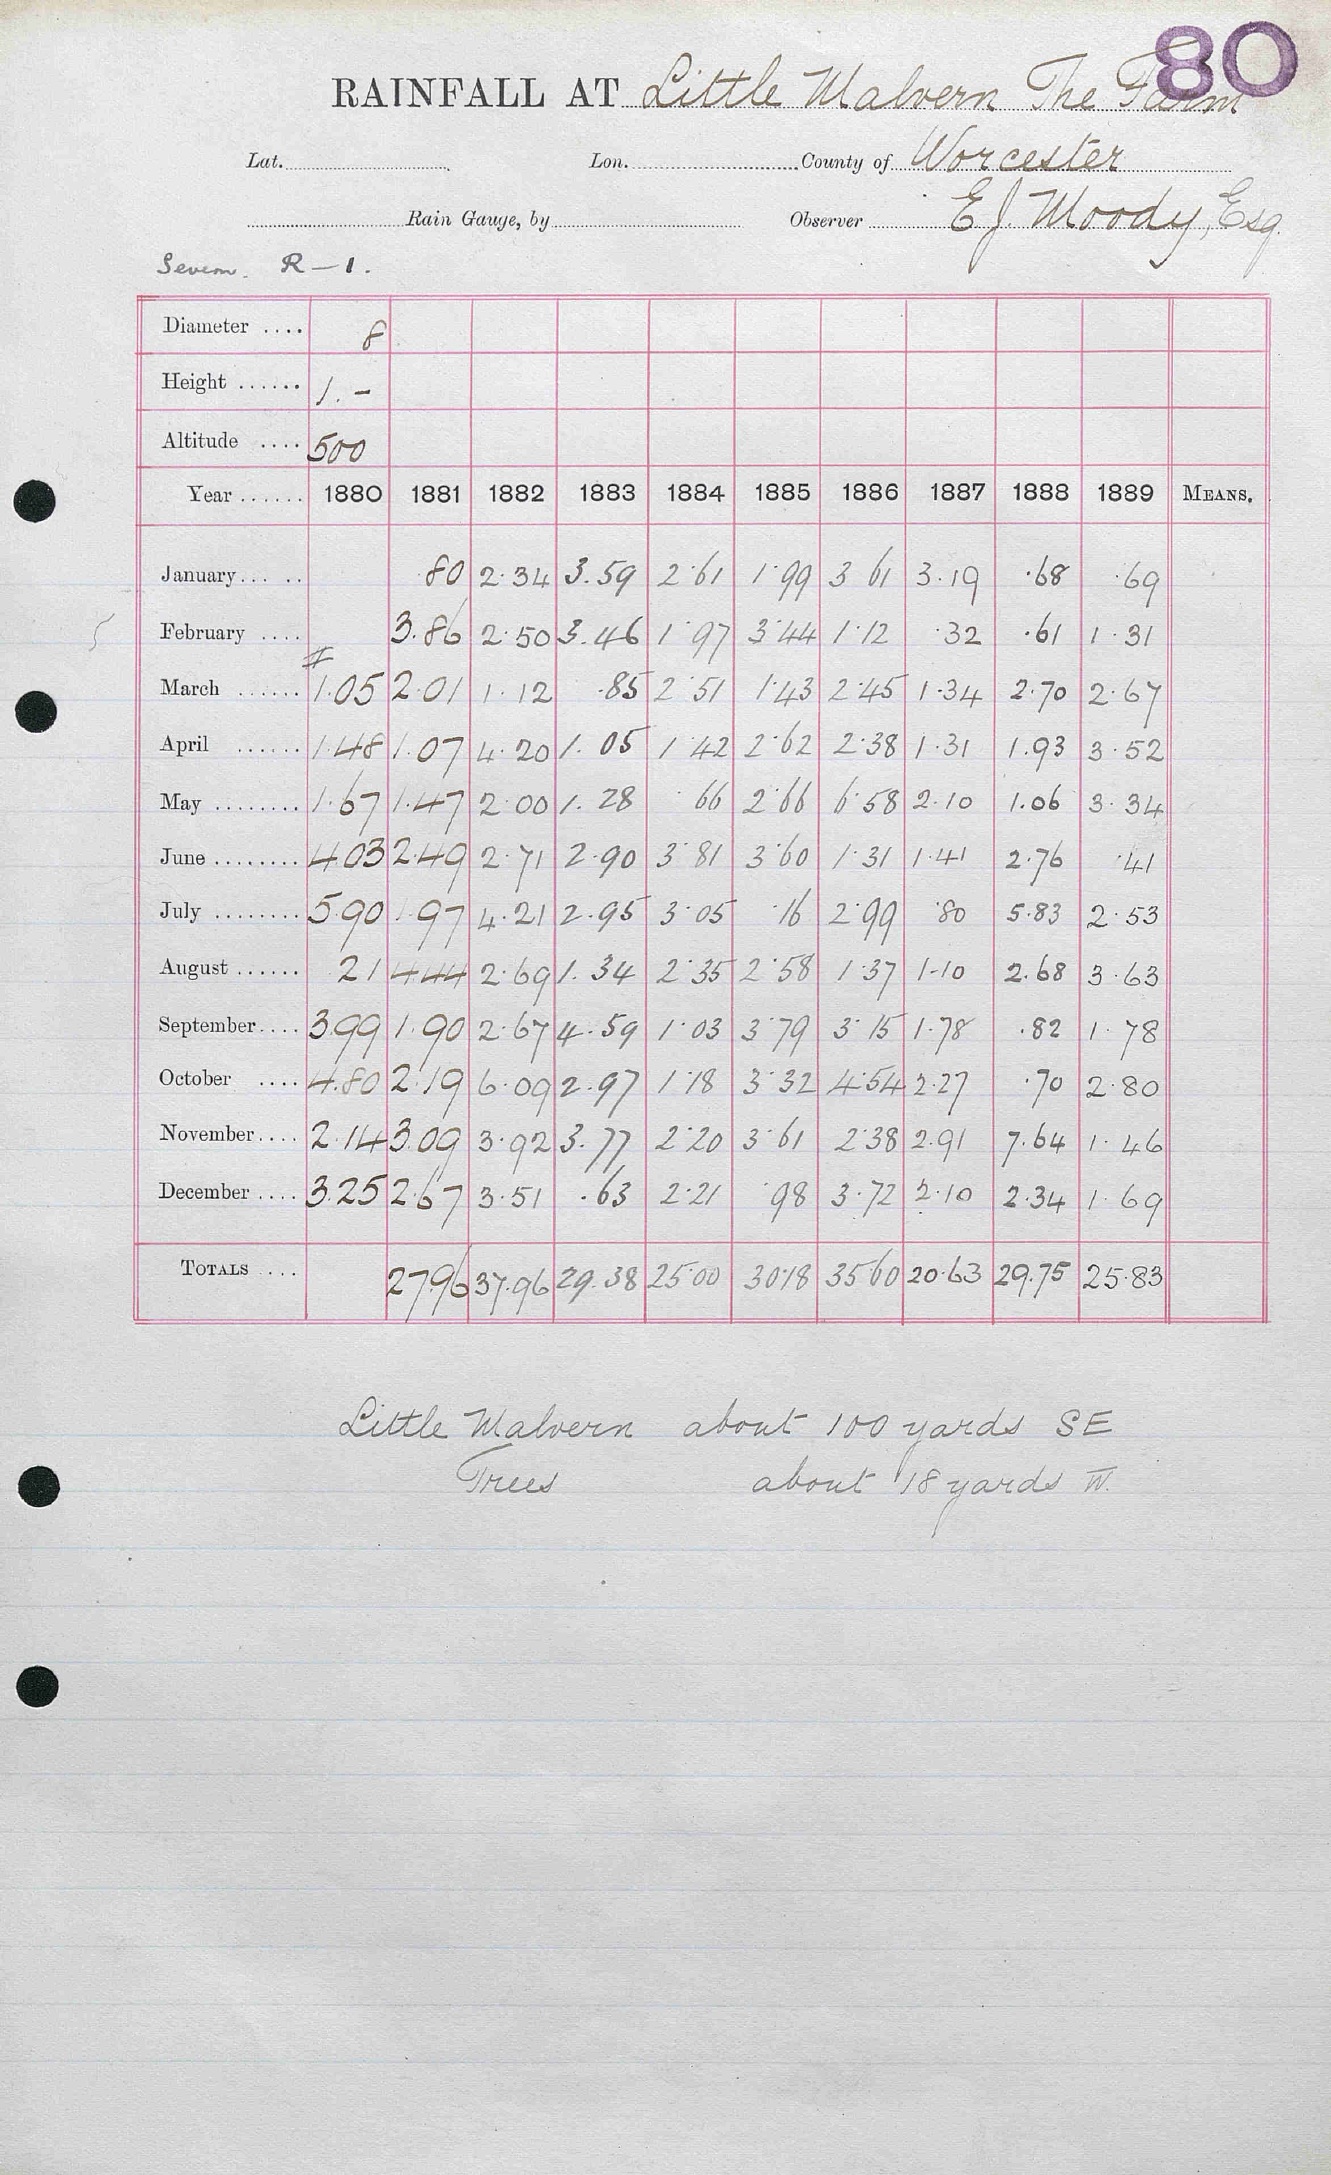 80
RAINFALL AT Little Malvern The Farm
Lat. Lon. County of Worcester
Rain Gauge, by Observer E J. Moody, Esq.
Severn. R-1.
Diameter .... 8
Height ...... 1. -
Altitude .... 500
Year ...... 1880 1881 1882 1883 1884 1885 1886 1887 1888 1889 MEANS.
January... .. .80 2.34 3.59 2.61 1.99 3 61 3.19 .68 .69
February .... 3.86 2.50 3.46 1.97 3.44 1.12 .32 .61 1.31
March ...... 1.05 2.01 1.12 .85 2.51 1.43 2.45 1.34 2.70 2.67
April ...... 1.48 1.07 4.20 1.05 1.42 2.62 2.38 1.31 1.93 3.52
May ........ 1.67 1.47 2.00 1.28 .66 2.66 6.58 2.10 1.06 3.34
June ........ 4.03 2.49 2.71 2.90 3.81 3.60 1.31 1.41 2.76 .41
July ........ 5.90 1.97 4.21 2.95 3.05 .16 2.99 .80 5.83 2.53
August ...... 21 4.44 2.69 1.34 2.35 2.58 1.37 1.10 2.68 3.63
September.... 3.99 1.90 2.67 4.59 1.03 3.79 3.15 1.78 .82 1.78
October .... 4.80 2.19 6.09 2.97 1.18 3.32 4.54 2.27 .70 2.80
November.... 2.14 3.09 3.92 3.77 2.20 3.61 2.38 2.91 7.64 1.46
December .... 3.25 2.67 3.51 .63 2.21 .98 3.72 2.10 2.34 1.69
TOTALS .... 27.96 37.96 29.38 25.00 30.18 35.60 20.63 29.75 25.83
Little Malvern about 100 yards SE
Trees about 18 yards W.